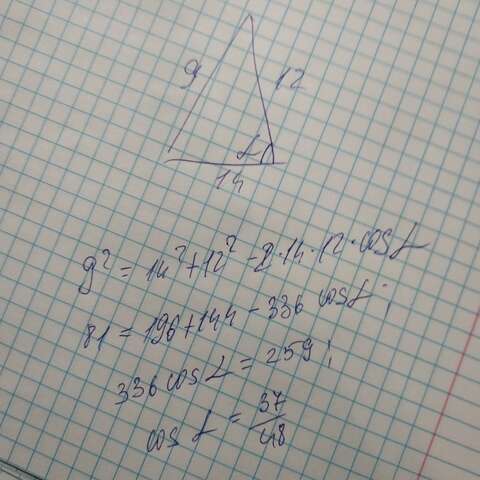 9
12
α
14
9² = 14² + 12² - 2·14·12·cos α
81 = 196 + 144 - 336 cos α;
336 cos α = 259;
cos α = 37/48